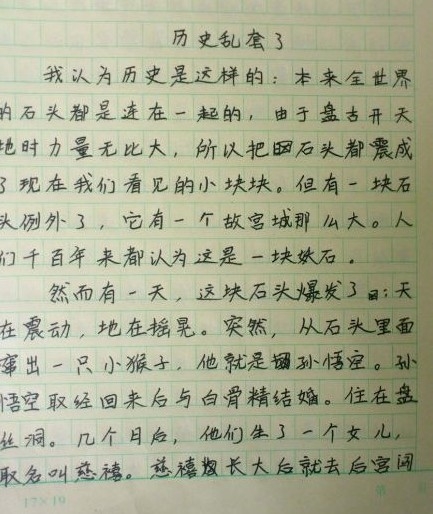 历史乱套了
我认为历史是这样的：本来全世界
的石头都是连在一起的，由于盘古开天
地时力量无比大，所以把石头都震成
了现在我们看见的小块块。但有一块石
头例外了，它有一个故宫城那么大。人
们千百年来都认为这是一块妖石。
然而有一天，这块石头爆发了：天
在震动，地在摇晃。突然，从石头里面
蹿出一只小猴子，他就是孙悟空。孙
悟空取经回来后与白骨精结婚。住在盘
丝洞。几个月后，他们生了一个女儿，
取名叫慈禧。慈禧长大后就去后宫闯
17×19